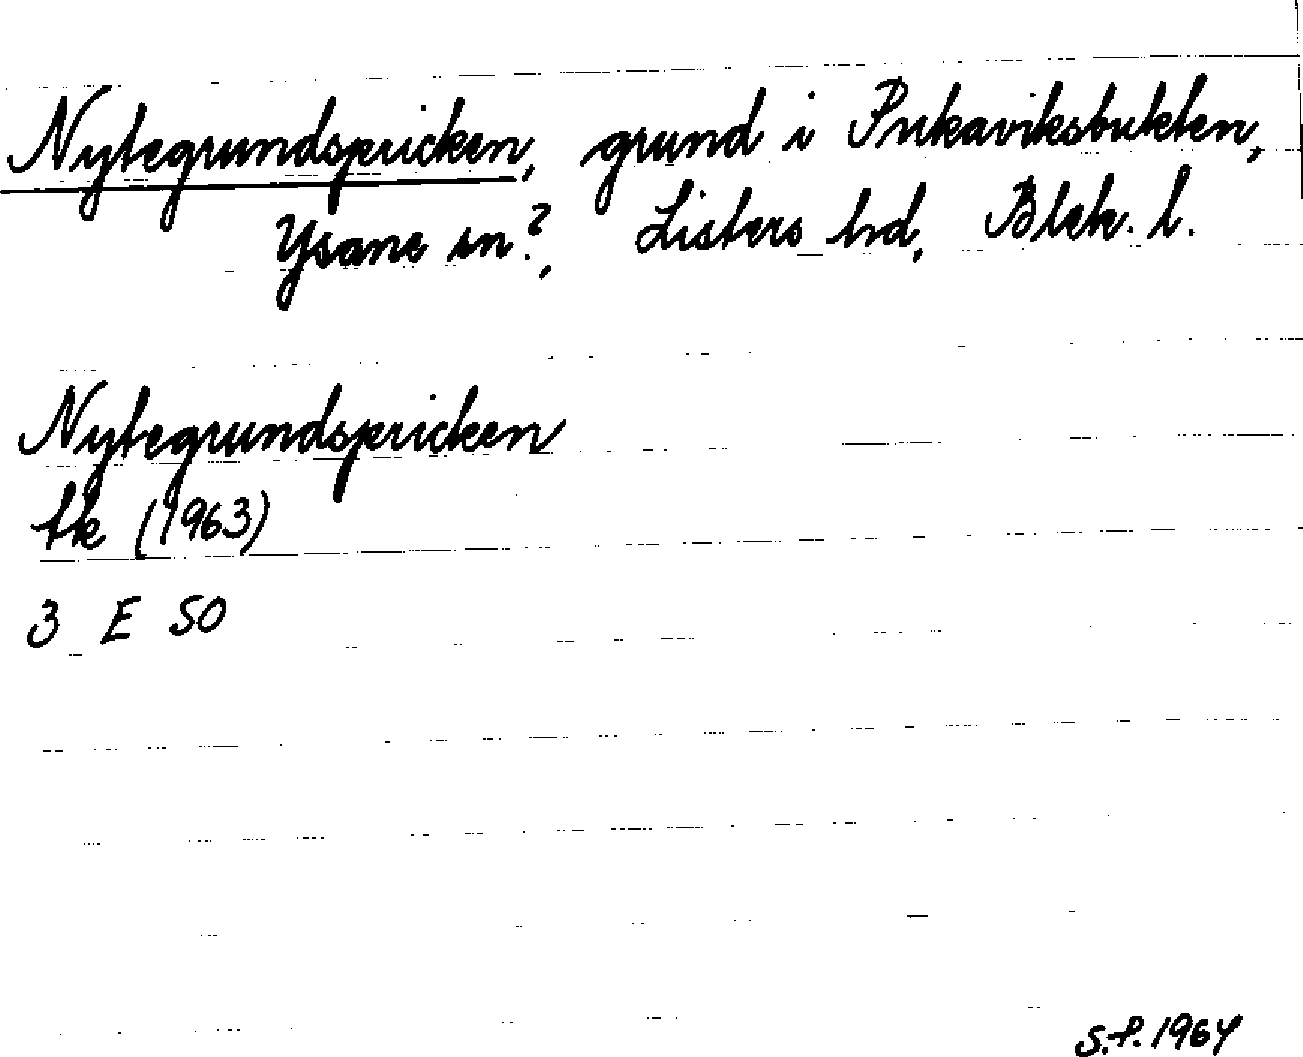 Nytegrundspricken, grund i Pukaviksbukten,
Ysane sn?, Listers hd, Blek. l.
Nytegrundspricken
tk (1963)
3 E SO
S.F. 1964